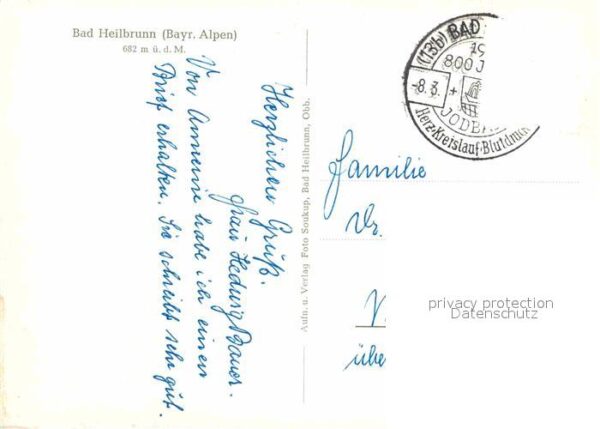 Bad Heilbrunn (Bayr. Alpen)
682 m ü. d. M.
Herzlichen Gruß.
Frau Hedwig Bauer.
Von Annemie habe ich einen
Brief erhalten. Sie schreibt sehr gut.
Aufn. u. Verlag Foto Soukup, Bad Heilbrunn, Obb.
(13b) BAD
19
800 J
-8.3.
JODBA
Herz·Kreislauf·Blutdruck
Familie
Dr.
V
übe
privacy protection
Datenschutz